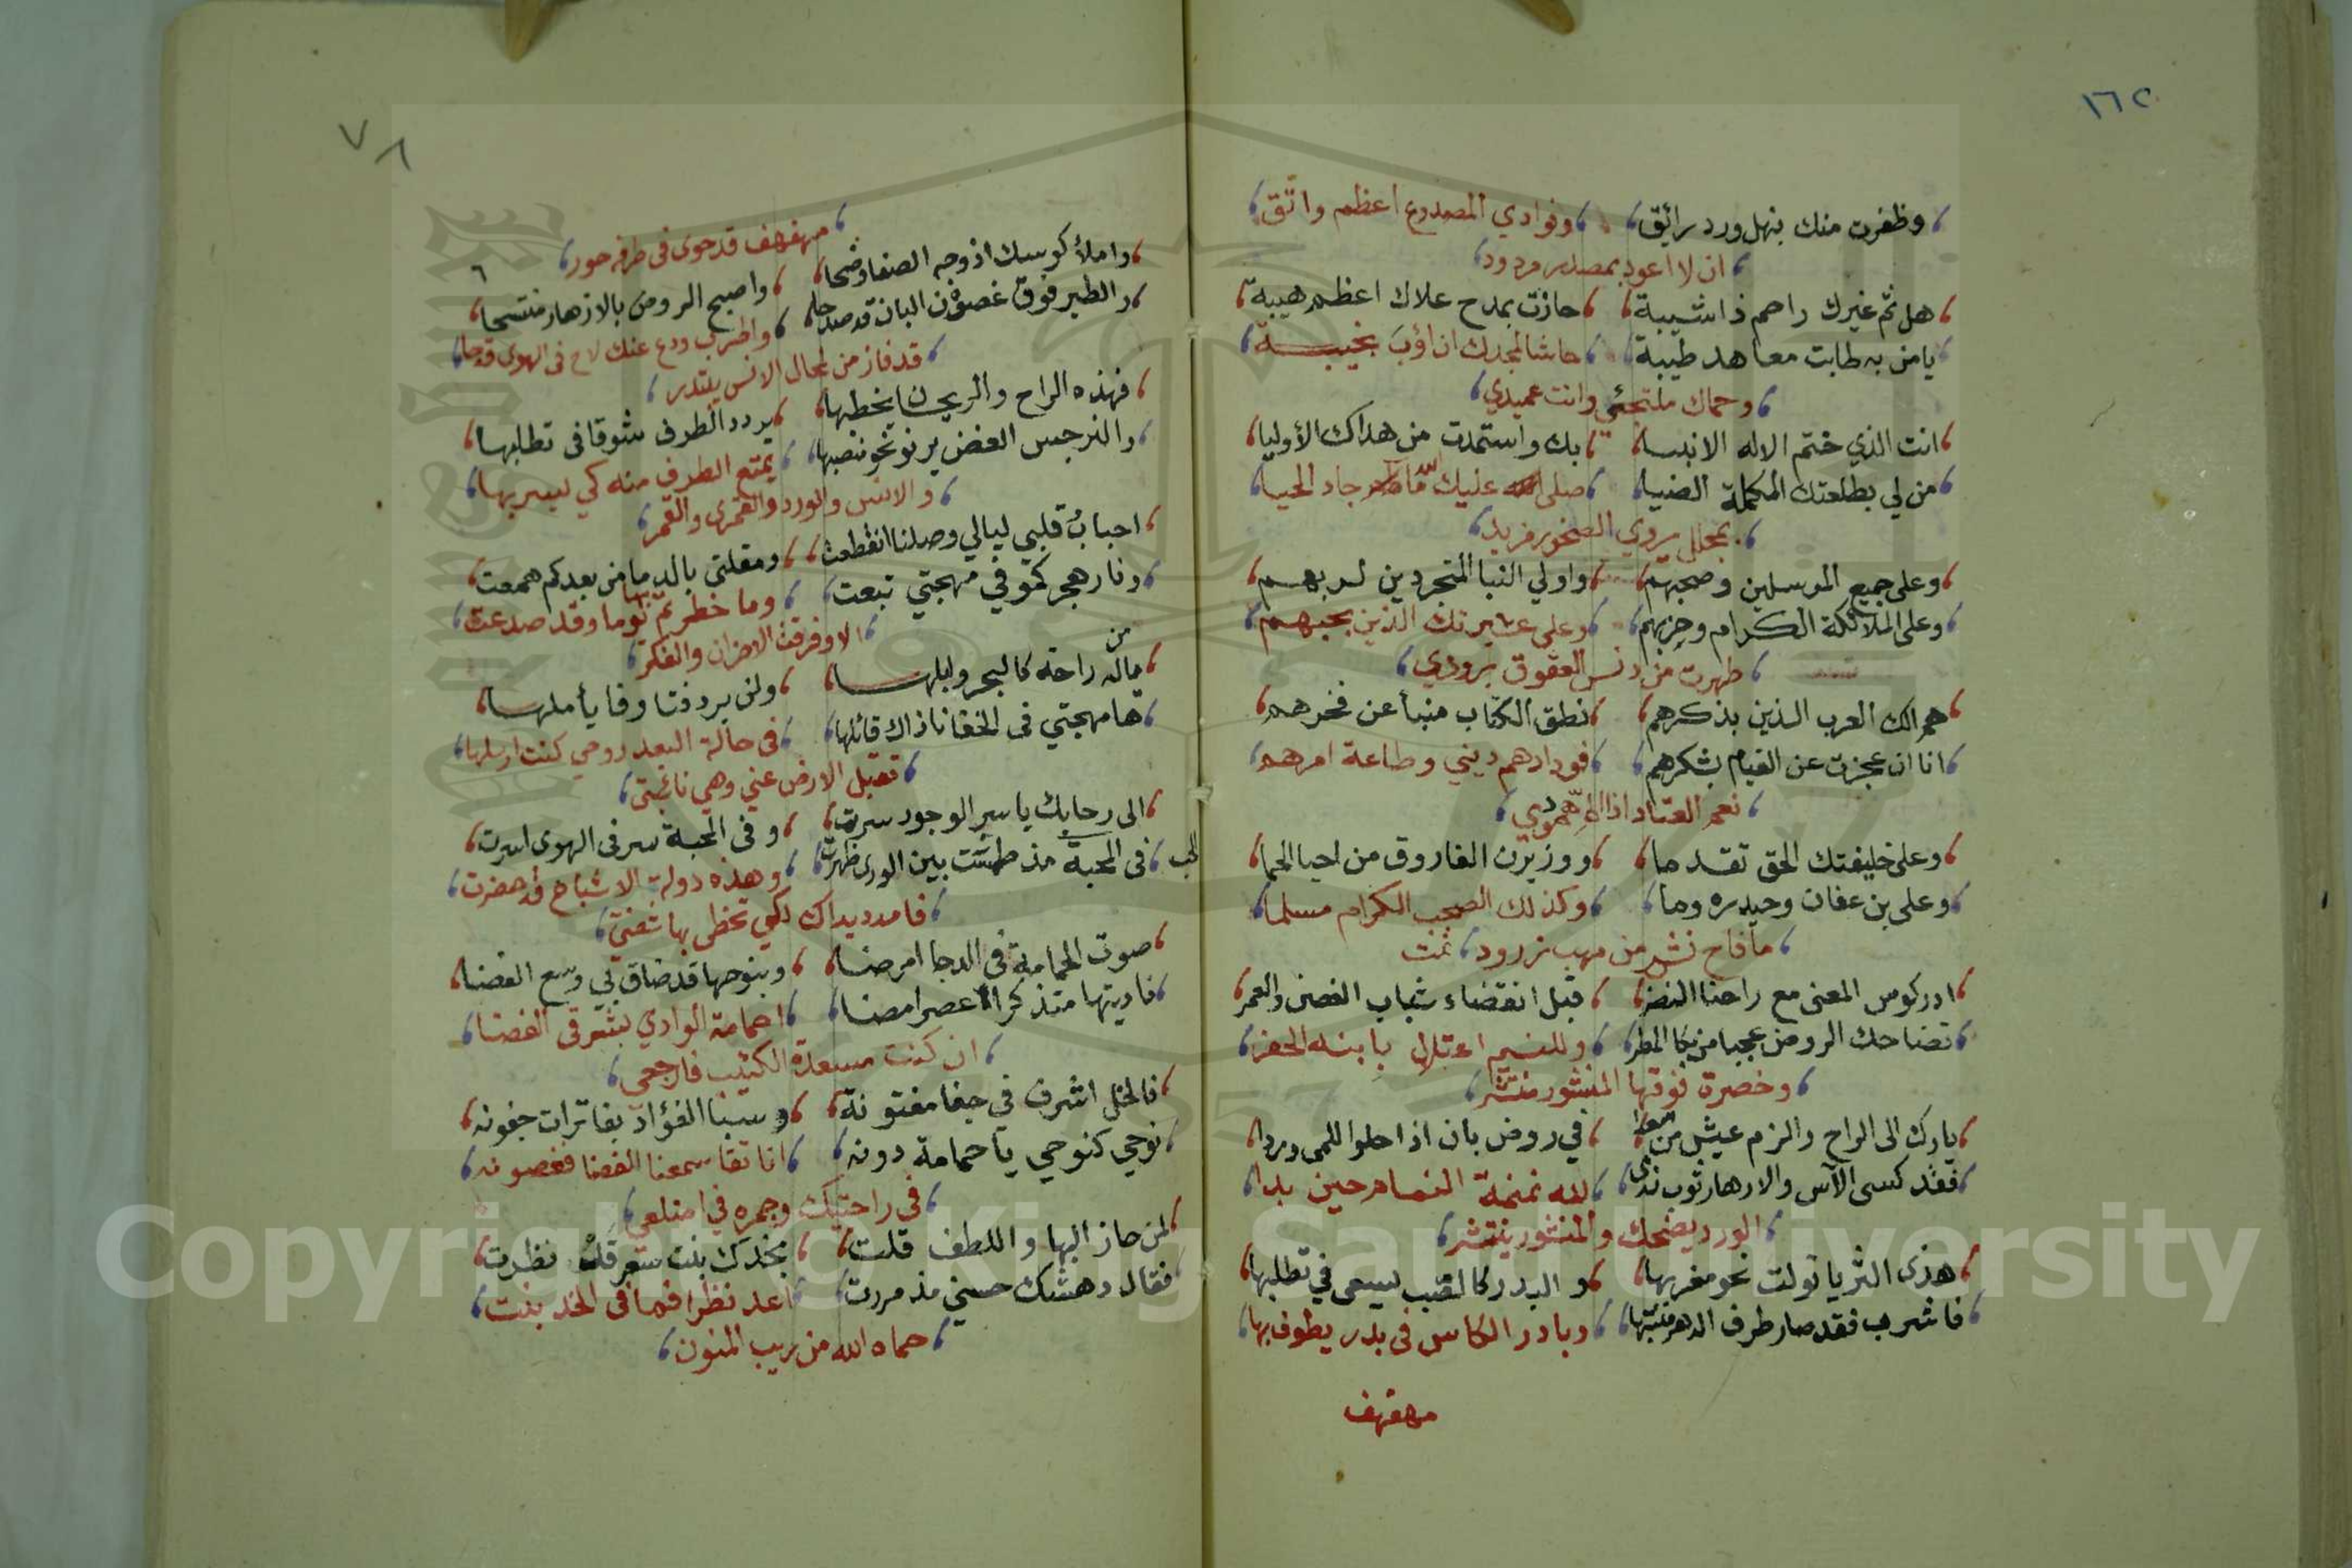 ١٦٢
وظفرت منك بنهل ورد رائق وفوادي المصدوع اعظم واثق
ان لا اعود بمصدر مردود
هل ثم غيرك راحم ذا شيبة حازت بمدح علاك اعظم هيبة
يا من به طابت معاهد طيبة حاشا لمجدك ان اؤب بخيبة
وحماك ملتجئي وانت عميدي
انت الذي ختم الاله الانبيا بك واستمدت من هداك الأوليا
من لي بطلعتك المكملة الضيا صلى عليك الله ما جاد الحيا
بمجلل يروي الصخور مزيد
وعلى جميع المرسلين وصحبهم واولي النبا المتجردين لربهم
وعلى الملائكة الكرام وحزبهم وعلى عشيرتك الذين بحبهم
طهرت من دنس العقوق برودي
هم الك العرب الذين بذكرهم نطق الكتاب منبأ عن فخرهم
انا ان عجزت عن القيام بشكرهم فودادهم ديني وطاعة امرهم
نعم العتاد اذا
وعلى خليفتك الحق تقدما ووزيرن الفاروق من احيا الحما
وعلى بن عفان وحيدره وما وكذلك الصحب الكرام مسلما
ما فاح نشر من مهب زرود تمت
ادر كوس المعنى مع راحنا النضر قبل انقضاء شباب الغصن والعمر
تضاحك الروض عجبا من بكا المطر وللنسيم اعتلال
وخضرة فوقها المنثور منتشر
بادرك الى الراح والزم عيش من في روض بان اذا حلوا اللمى وردا
فقد كسى الآس والازهار ثوب ندى لله نمنمة النمام حين بدا
الورد يضحك والمنثور ينتثر
هذى الثريا تولت نحو مغربها والبدر كالقب ليسعى في تطلبها
فاشرب فقد صار طرف الدهر منتبها وبادر الكاس فى بدر يطوف بها
مهفهف
٧٨
مهفهف قد حوى فى طرفه حور
واملأ كوسك اذ وجه الصفا وضحا واصبح الروض بالازهار متشحا
والطير فوق غصون البان قد صدحا واطرب ودع عنك لاح فى الهوى قدحا
قد فاز من لمجال الانس يبتدر
فهذه الراح والريحان يخطبها يردد الطرف شوقا فى تطلبها
والنرجس الغض يرنو نحو منصبها يمتع الطرف منه كي ليسر بها
والاس والورد والقمرى والقمر
احباب قلبي ليالي وصلنا انقطعت ومقلتى بالدما من بعدكم همعت
ونار هجركمو في مهجتي تبعت وما خطرتم بها يوما وقد صدعت
الا وفرقت الاحزان والفكر
من
ماله راحة كالبحر وابلها ولن يرد فتا وفا يأملها
ها مهجتي فى الخفا نا ذاك قائلها فى حالة البعد روحي كنت ارسلها
تقبل الارض عني وهي نائبتى
الى رحابك يا سر الوجود سرت وفى المحبة سر فى الهوى اسرت
فى المحبة مذ بين الورى ظهرت وهذه دولة الاشباح قد حضرت
فامدد يداك لكي تحظى بها شفتي
صوت الحمامة فى الدجا امرضا وبنوحها قد ضاق بي وسع الفضا
ناديتها متذكرا عصرا مضا احمامة الوادي بشرقى الغضا
ان كنت مسعدة الكئيب فارجعي
فالخل اشرف في جفا مفتونة وسبا الفؤاد بفاترات جفونه
نوحي كنوحي يا حمامة دونه انا تقاسمنا الغضا فغصونه
في راحتيك وجمره في اضلعي
لمن حاز البها واللطف قلت بخدك بنت شعر قلت نظرت
فقال دهشك حسني مذ مررت اعد نظرا فما فى الخد بنت
حماه الله من ريب المنون